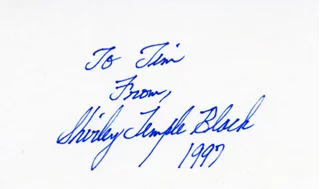 To Tim
From,
Shirley Temple Black
1997